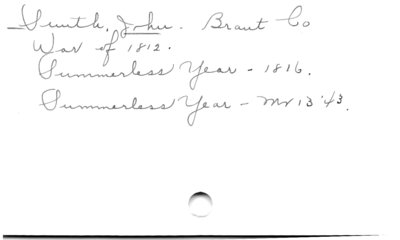 Smith, John. Brant Co
War of 1812.
Summerless Year - 1816.
Summerless Year - Mr 13 '43.